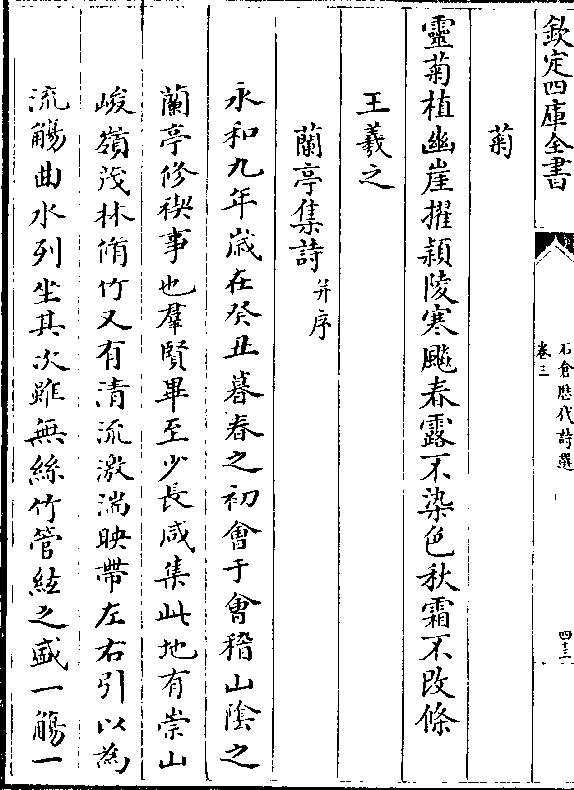 欽定四庫全書
石倉歴代詩選
卷三
四十三
菊
靈菊植幽崖擢穎陵寒飈春露不染色秋霜不改條
王羲之
蘭亭集詩并序
永和九年歲在癸丑暮春之初會于會稽山陰之
蘭亭修禊事也羣賢畢至少長咸集此地有崇山
峻嶺茂林脩竹又有清流激湍映帶左右引以為
流觴曲水列坐其次雖無絲竹管絃之盛一觴一